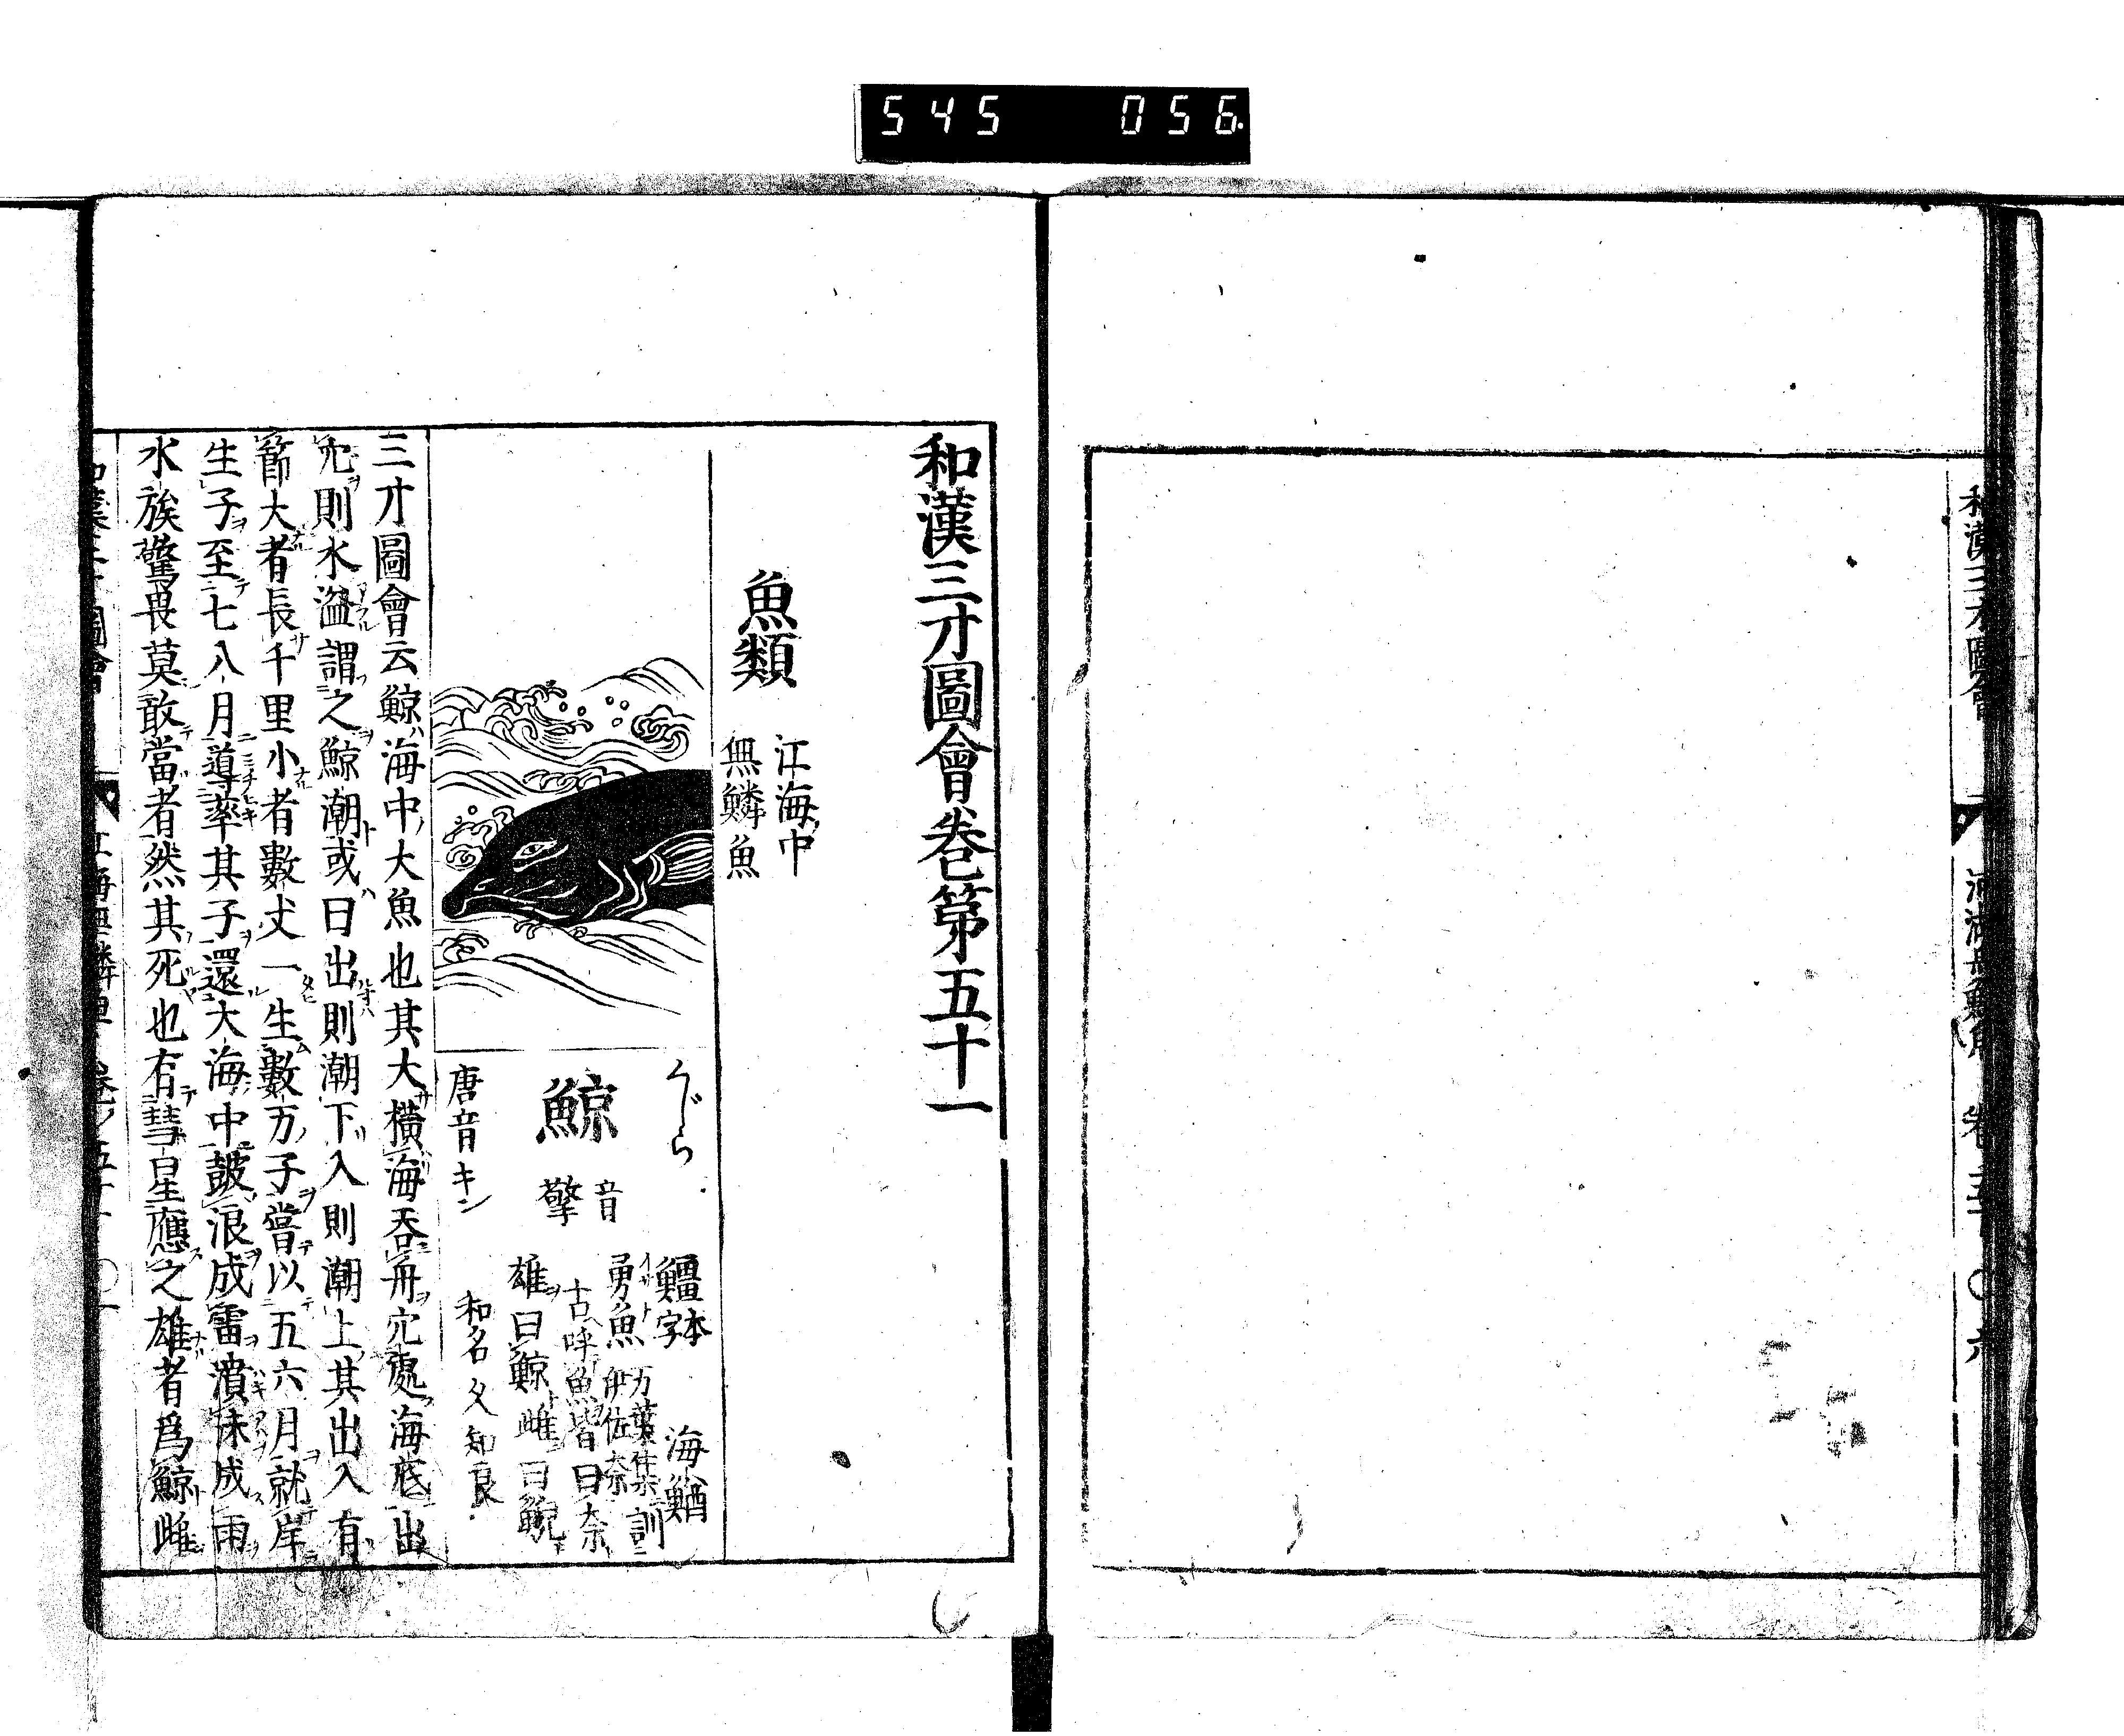 545 056
和漢三才圖會卷第五十一
魚類 江海中
無鱗魚
くじら
鯨
音
擎
唐音キン
䲔 本字 海鰌
勇魚 万葉集訓
伊佐奈
古呼魚皆曰奈
雄曰鯨雌曰鯢
和名久知良
三才圖會云鯨海中大魚也其大橫海呑舟穴處海底出
穴則水溢謂之鯨潮或曰出則潮下入則潮上其出入有
節大者長千里小者數丈一生數万子嘗以五六月就岸
生子至七八月導率其子還大海中皷浪成雷濆沫成雨
水族驚畏莫敢當者然其死也有彗星應之雄者爲鯨雌